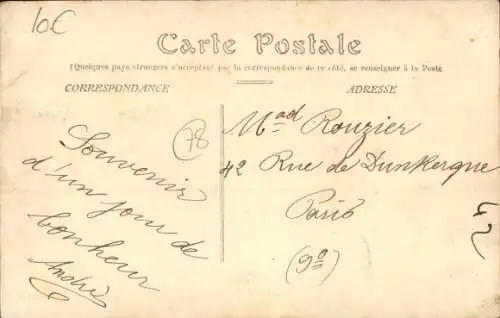 10€
Carte Postale
(Quelques pays étrangers n'acceptant pas la correspondance de ce côté, se renseigner à la Poste
CORRESPONDANCE
ADRESSE
78
Souvenir
d'un jour de
bonheur
André
Mad Rouzier
42 Rue de Dunkerque
Paris
(9e)
42